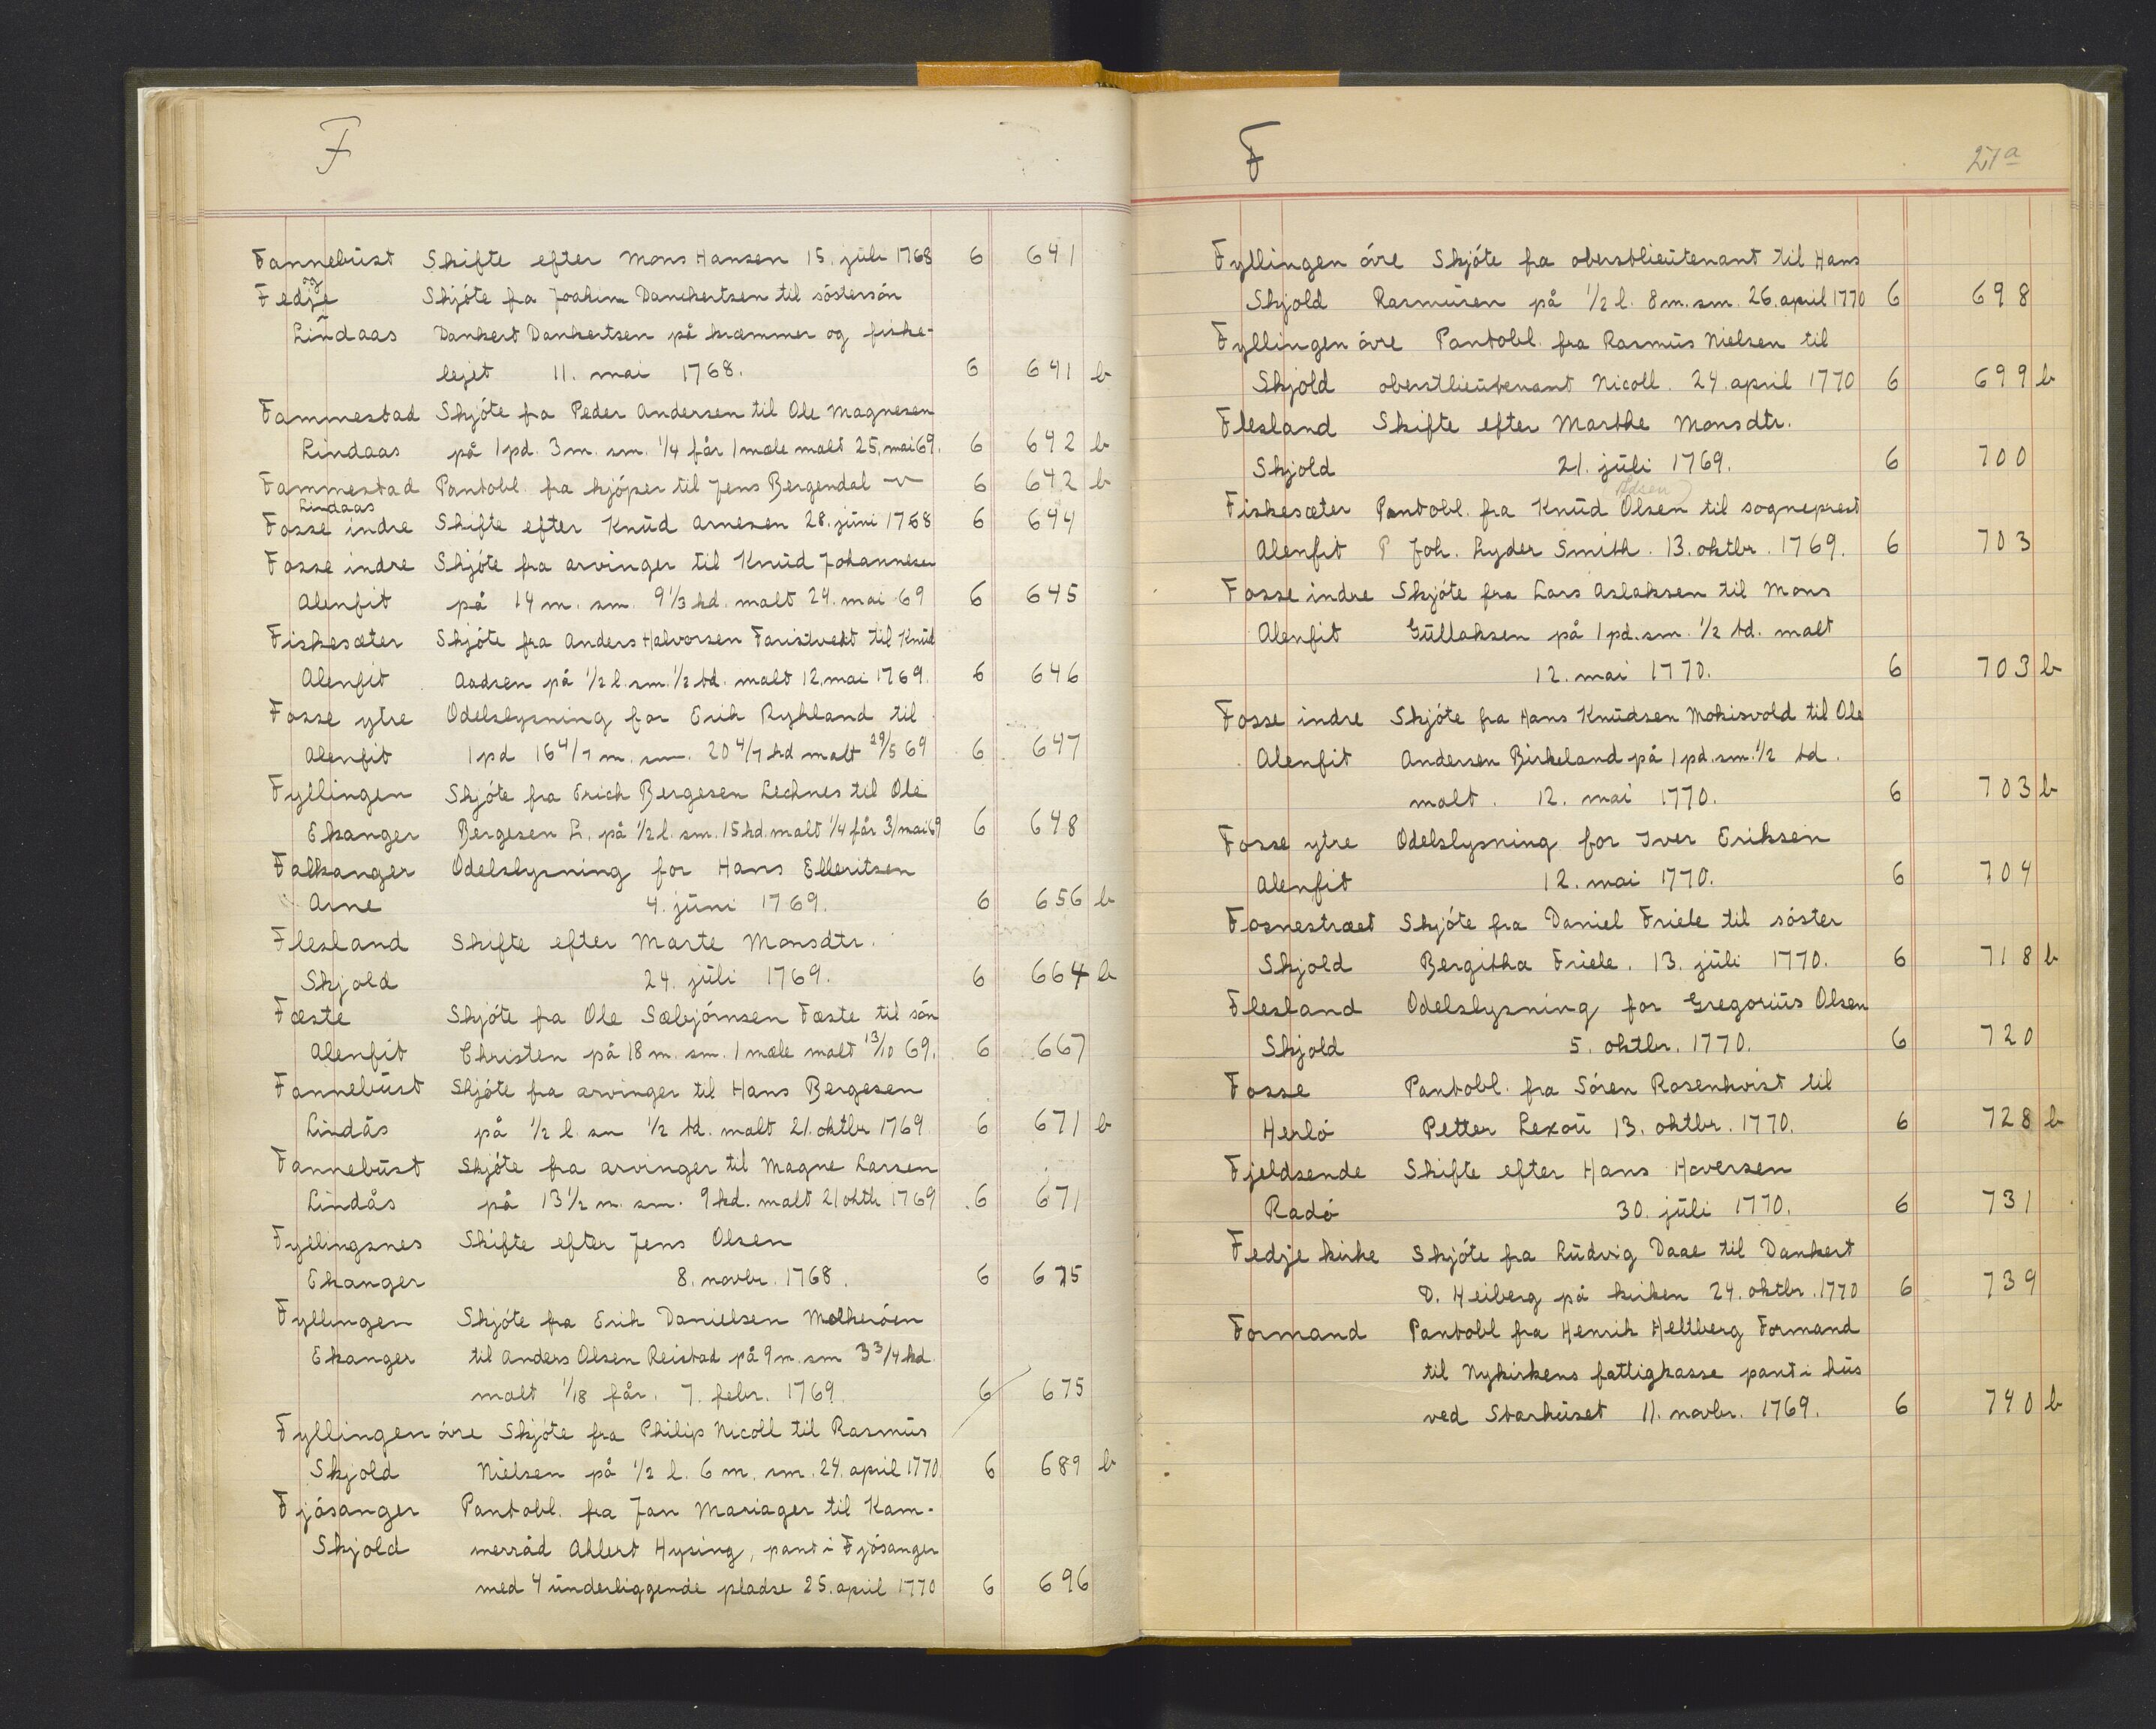 F
Fannebust Skifte efter Mons Hansen 15. juli 1768 6 641
og
Fedje Skjöte fra Joakim Danckertsen til söstersön
Lindaas Dankert Dankertsen på kræmmer og fiske-
lejet 11. mai 1768. 6 641 b
Fammestad Skjöte fra Peder Andersen til Ole Magnesen
Lindaas på 1 pd. 3 m. sm. 1/4 får 1 mæle malt 25. mai 69. 6 642 b
Fammestad Pantobl. fra kjöper til Jens Bergendal 6 642 b
Lindaas
Fosse indre Skifte efter Knud Arnesen 28. juni 1768 6 644
Fosse indre Skjöte fra arvinger til Knud Johannesen
Alenfit på 14 m. sm. 9 1/3 kd. malt 24. mai 69 6 645
Fiskesæter Skjöte fra Anders Halvorsen Faristvekt til Knud
Alenfit Aadsen på 1/2 l. sm. 1/2 td. malt 12. mai 1769. 6 646
Fosse ytre Odelslysning for Erik Ryhland til
Alenfit 1 pd 16 4/7 m. sm. 20 4/7 kd malt 29/5 69 6 647
Fyllingen Skjöte fra Erich Bergesen Lechnes til Ole
Ekanger Bergesen L. på 1/2 l. sm. 15 kd. malt 1/4 får 31 mai 69 6 648
Falkanger Odelslysning for Hans Elleritsen
Arne 4. juni 1769. 6 656 b
Flesland Skifte efter Marte Monsdtr.
Skjold 24. juli 1769. 6 664 b
Fæste Skjöte fra Ole Sæbjörnsen Fæste til sön
Alenfit Christen på 18 m. sm. 1 mæle malt 13/10 69. 6 667
Fannebust Skjöte fra arvinger til Hans Bergesen
Lindås på 1/2 l. sm 1/2 td. malt 21. oktbr 1769. 6 671 b
Fannebust Skjöte fra arvinger til Magne Larsen
Lindås på 13 1/2 m. sm. 9 kd. malt 21 oktb 1769 6 671
Fyllingsnes Skifte efter Jens Olsen
Ekanger 8. novbr. 1768. 6 675
Fyllingen Skjöte fra Erik Danielsen Molkeröen
Ekanger til Anders Olsen Reistad på 9 m. sm 3 3/4 kd.
malt 1/18 får. 7. febr. 1769. 6 675
Fyllingen övre Skjöte fra Philip Nicoll til Rasmus
Skjold Nielsen på 1/2 l. 6 m. sm. 24. april 1770. 6 689 b
Fjösanger Pantobl. fra Jan Mariager til Kam-
Skjold merråd Ahlert Hysing, pant i Fjösanger
med 4 underliggende pladse 25. april 1770 6 696
F 27 a
Fyllingen övre Skjöte fra oberstlieutenant til Hans
Skjold Rasmusen på 1/2 l. 8 m. sm. 26. april 1770 6 698
Fyllingen övre Pantobl. fra Rasmus Nielsen til
Skjold oberstlieutenant Nicoll. 24. april 1770 6 699 b
Flesland Skifte efter Marthe Monsdtr.
Skjold 21. juli 1769. 6 700
Adsen
Fiskesæter Pantobl. fra Knud Olsen til sogneprest
Alenfit P Joh. Lyder Smith. 13. oktbr. 1769. 6 703
Fosse indre Skjöte fra Lars Aslaksen til Mons
Alenfit Gullaksen på 1 pd. sm. 1/2 td. malt
12. mai 1770. 6 703 b
Fosse indre Skjöte fra Hans Knudsen Mokisvold til Ole
Alenfit Andersen Birkeland på 1 pd. sm. 1/2 td.
malt. 12. mai 1770. 6 703 b
Fosse ytre Odelslysning for Iver Eriksen
Alenfit 12. mai 1770. 6 704
Fosnestræet Skjöte fra Daniel Friele til söster
Skjold Bergitha Friele. 13. juli 1770. 6 718 b
Flesland Odelslysning for Gregorius Olsen
Skjold 5. oktbr. 1770. 6 720
Fosse Pantobl. fra Sören Rosenkvist til
Herlö Petter Lexou 13. oktbr. 1770. 6 728 b
Fjeldsende Skifte efter Hans Haversen
Radö 30. juli 1770. 6 731
Fedje kirke Skjöte fra Ludvig Daae til Dankert
D. Heiberg på kirken 24. oktbr. 1770 6 739
Formand Pantobl fra Henrik Heltberg Formand
til Nykirkens fattigkasse pant i hus
ved Starhuset 11. novbr. 1769. 6 740 b